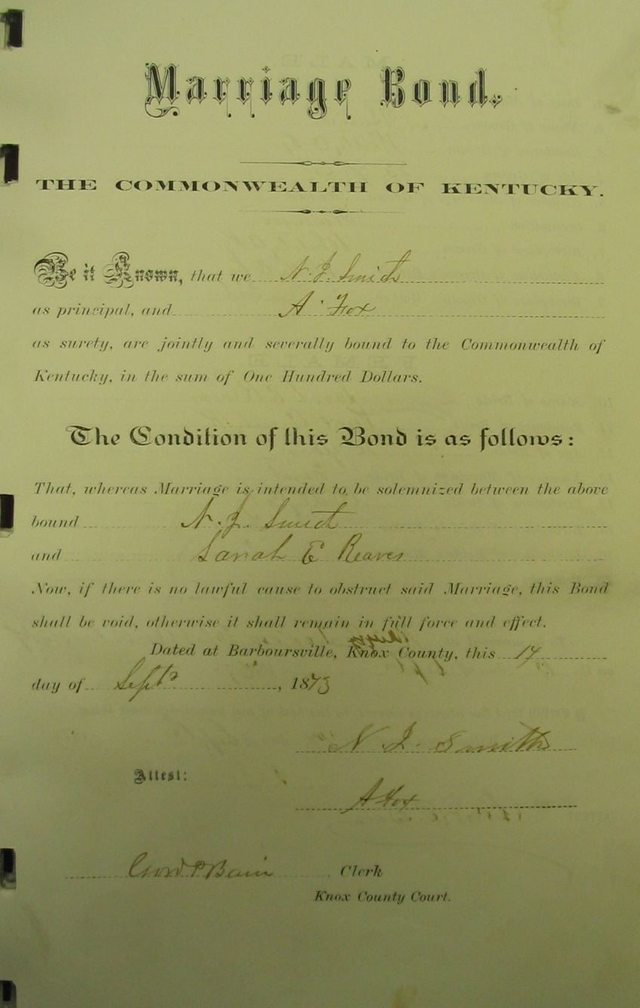 Marriage Bond.
THE COMMONWEALTH OF KENTUCKY.
Be it Known, that we N. J. Smith
as principal, and A. Fox
as surety, are jointly and severally bound to the Commonwealth of
Kentucky, in the sum of One Hundred Dollars.
The Condition of this Bond is as follows:
That, whereas Marriage is intended to be solemnized between the above
bound N. J. Smith
and Sarah E Reaves
Now, if there is no lawful cause to obstruct said Marriage, this Bond
shall be void, otherwise it shall remain in full force and effect.
Dated at Barboursville, Knox County, this 14
day of Sept, 1873
N J. Smith
Attest:
A Fox
Clerk
Knox County Court.